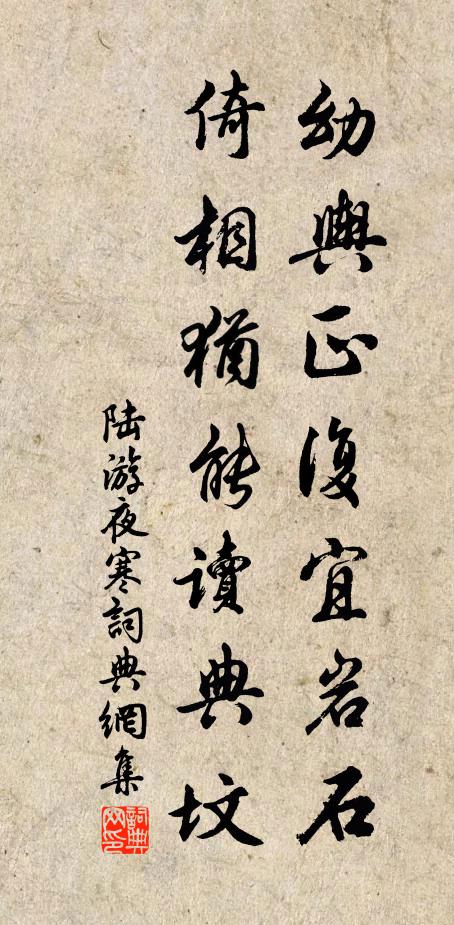 幼輿正復宜岩石
倚相猶能讀典墳
陸游夜寒詞典網集
詞典網印